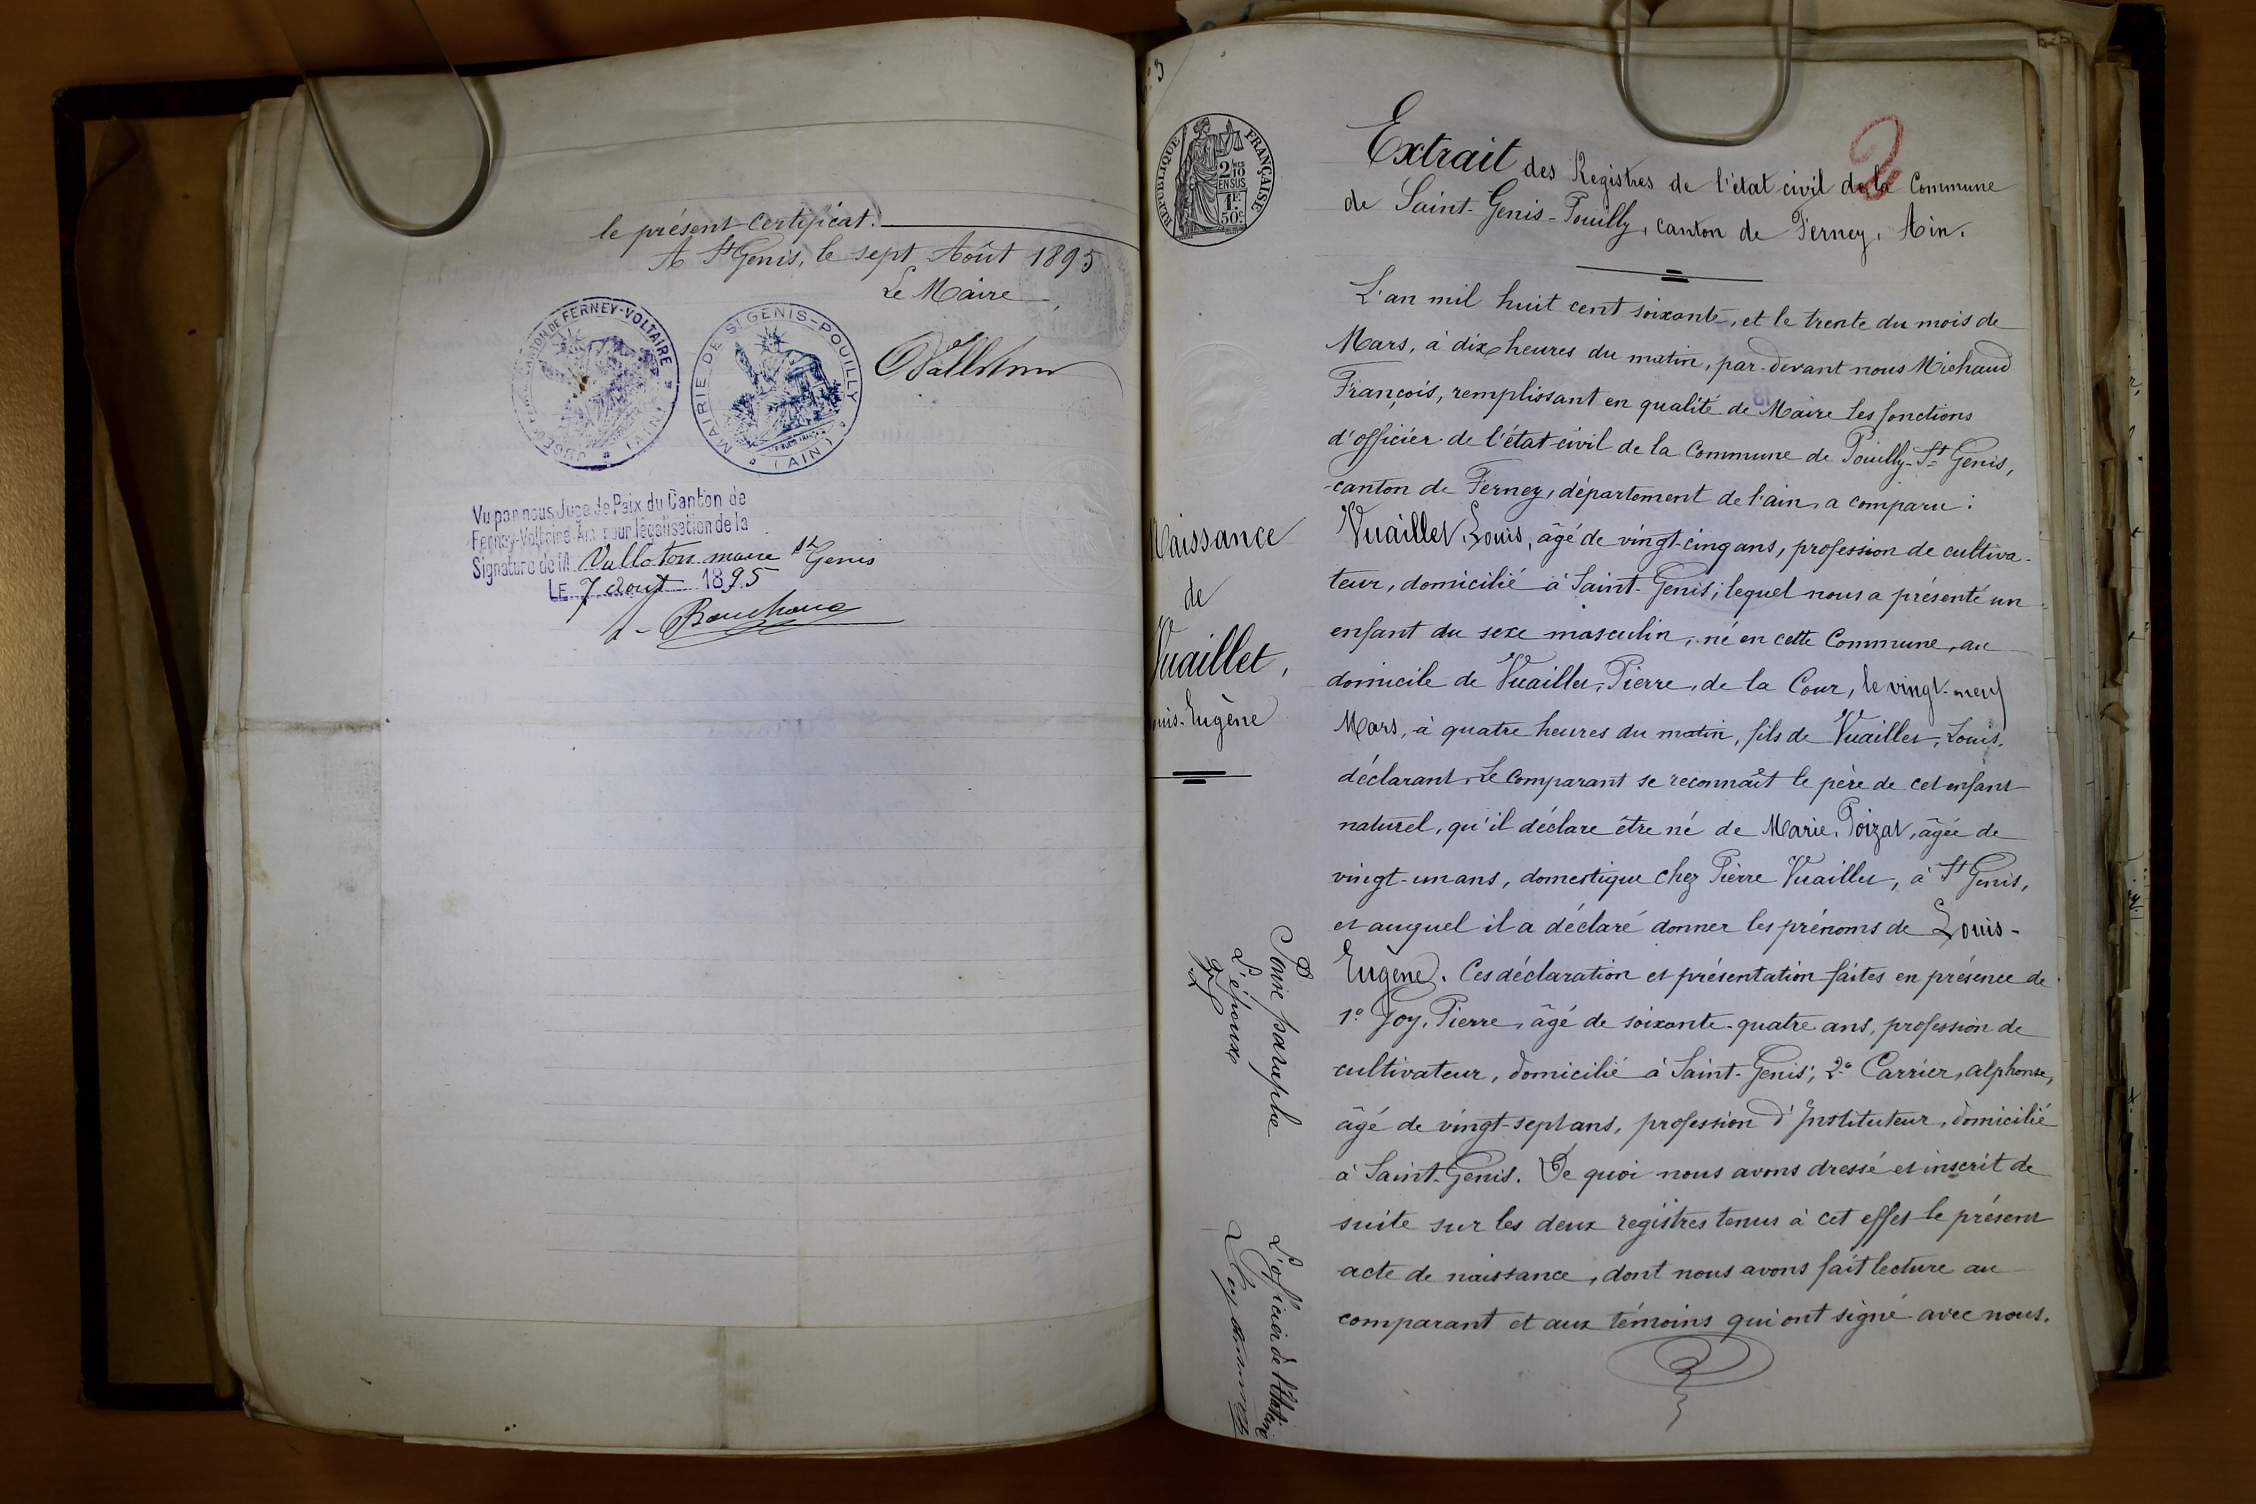 le présent certificat.
A St Genis, le sept Août 1895
Le Maire
CANTON DE FERNEY-VOLTAIRE
(AIN)
MAIRIE DE St GENIS-POUILLY
(AIN)
Vu par nous Juge de Paix du Canton de
Ferney-Voltaire Ain pour légalisation de la
Signature de M Valloton maire St Genis
LE 7 aout 1895
RÉPUBLIQUE FRANÇAISE
2/10
EN SUS
1F.
50c
2
Extrait des Registres de l'état civil de la Commune
de Saint-Genis-Pouilly, canton de Ferney, Ain.
Naissance
de
Vuaillet,
Louis-Eugène
L'an mil huit cent soixante, et le trente du mois de
Mars, à dix heures du matin, par-devant nous Michaud
François, remplissant en qualité de Maire les fonctions
d'officier de l'état-civil de la Commune de Pouilly-St Genis,
canton de Ferney, département de l'ain, a comparu :
Vuaillet Louis, âgé de vingt-cinq ans, profession de cultiva-
teur, domicilié à Saint-Genis; lequel nous a présenté un
enfant du sexe masculin, né en cette Commune, au
domicile de Vuaillet, Pierre, de la Cour, le vingt-neuf
Mars, à quatre heures du matin, fils de Vuaillet, Louis,
déclarant. Le Comparant se reconnaît le père de cet enfant
naturel, qu'il déclare être né de Marie Poizat, âgée de
vingt-un ans, domestique chez Pierre Vuaillet, à St Genis,
et auquel il a déclaré donner les prénoms de Louis-
Eugène. Ces déclaration et présentation faites en présence de
1° Goy, Pierre, âgé de soixante-quatre ans, profession de
cultivateur, domicilié à Saint-Genis; 2° Carrier, alphonse,
âgé de vingt-sept ans, profession d'Instituteur, domicilié
à Saint-Genis. De quoi nous avons dressé et inscrit de
suite sur les deux registres tenus à cet effet le présent
acte de naissance, dont nous avons fait lecture au
comparant et aux témoins qui ont signé avec nous.
Pour paraphe
L'époux
L'officier de l'état civil